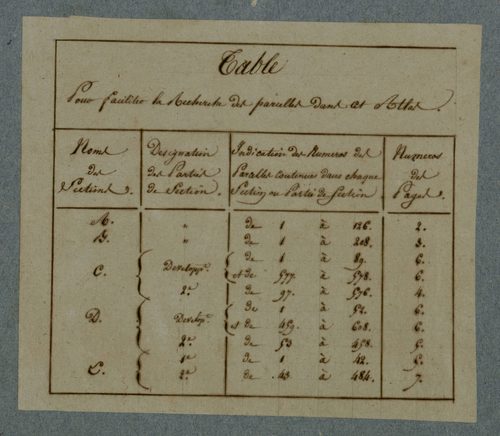 Table
Pour faciliter la Recherche des parcelles dans cet Atlas.
Noms des Sections.
Designation des Parties de Section.
Indication des Numeros des Parcelles contenues dans chaque Section ou Partie de Section.
Numeros des Pages.
A. " de 1 à 126. 2.
B. " de 1 à 208. 3.
C. Developpt. de 1 à 89. 6.
et de 577. à 578. 6.
2e de 97. à 576. 4.
D. Develop.t de 1 à 52. 6.
et de 459. à 608. 6.
2e de 53 à 458. 5.
1e de 1 à 42. 6.
2e de 43 à 484. 7.